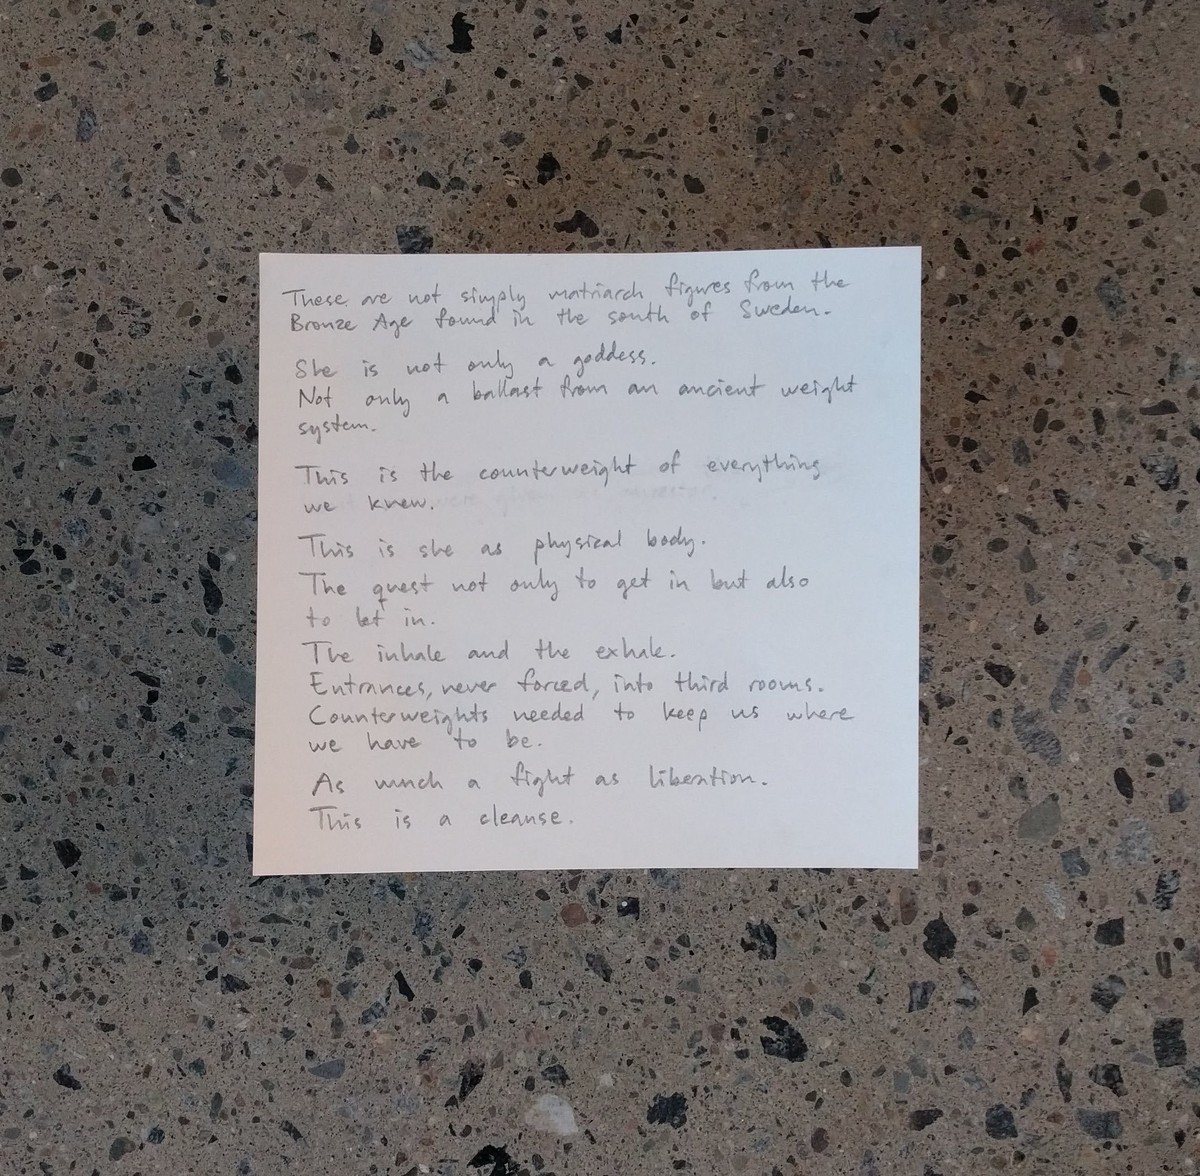 These are not simply matriarch figures from the
Bronze Age found in the south of Sweden.
She is not only a goddess.
Not only a ballast from an ancient weight
system.
This is the counterweight of everything
we knew.
This is she as physical body.
The quest not only to get in but also
to let in.
The inhale and the exhale.
Entrances, never forced, into third rooms.
Counterweights needed to keep us where
we have to be.
As much a fight as liberation.
This is a cleanse.